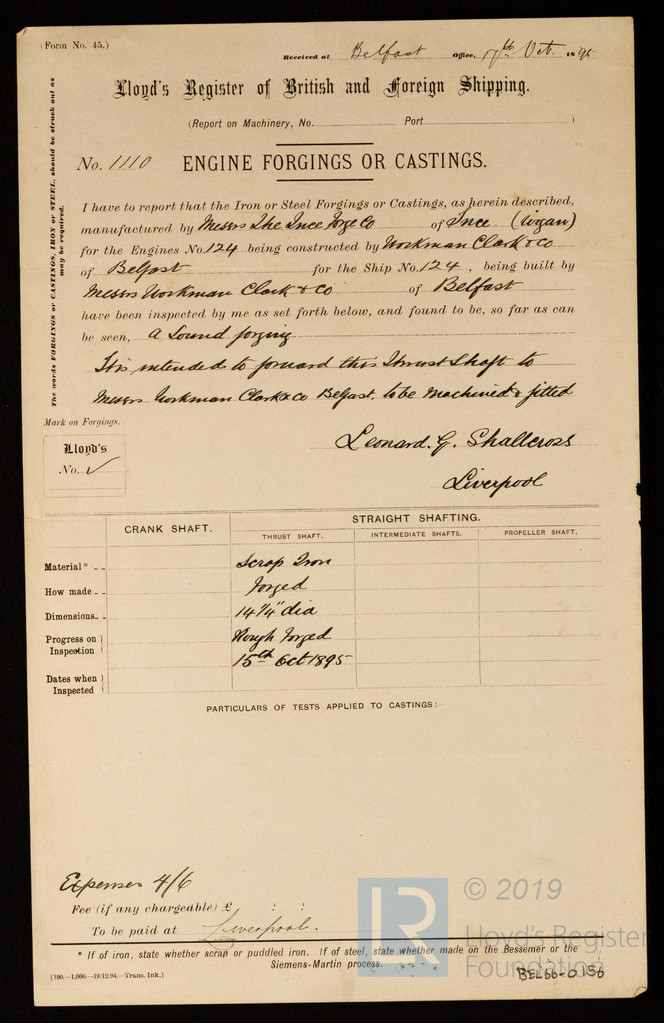 (Form No. 45.)
Received at Belfast Office, 17th Oct. 1895
Lloyd's Register of British and Foreign Shipping.
(Report on Machinery, No. Port )
No. 1110 ENGINE FORGINGS OR CASTINGS.
The words FORGINGS or CASTINGS, IRON or STEEL, should be struck out as
may be required.
I have to report that the Iron or Steel Forgings or Castings, as herein described,
manufactured by Messrs The Ince Forge Co of Ince (Wigan)
for the Engines No. 124 being constructed by Workman Clark & Co
of Belfast for the Ship No. 124, being built by
Messrs Workman Clark & Co of Belfast
have been inspected by me as set forth below, and found to be, so far as can
be seen, a Sound forging
It is intended to forward this Thrust Shaft to
Messrs Workman Clark & Co Belfast, to be Machined & fitted
Mark on Forgings.
Lloyd's
No. ✓
Leonard. G. Shallcross
Liverpool
CRANK SHAFT. STRAIGHT SHAFTING.
THRUST SHAFT. INTERMEDIATE SHAFTS. PROPELLER SHAFT.
Material* Scrap Iron
How made Forged
Dimensions 14 1/4" dia
Progress on Inspection Rough Forged
15th Oct 1895
Dates when Inspected
PARTICULARS OF TESTS APPLIED TO CASTINGS:—
Expenses 4/6
Fee (if any chargeable) £ : :
To be paid at Liverpool.
* If of iron, state whether scrap or puddled iron. If of steel, state whether made on the Bessemer or the
Siemens-Martin process.
(190.—1,000.—19/12/94.—Trans. Ink.)
BEL66-0156
LR
© 2019
Lloyd's Register
Foundation